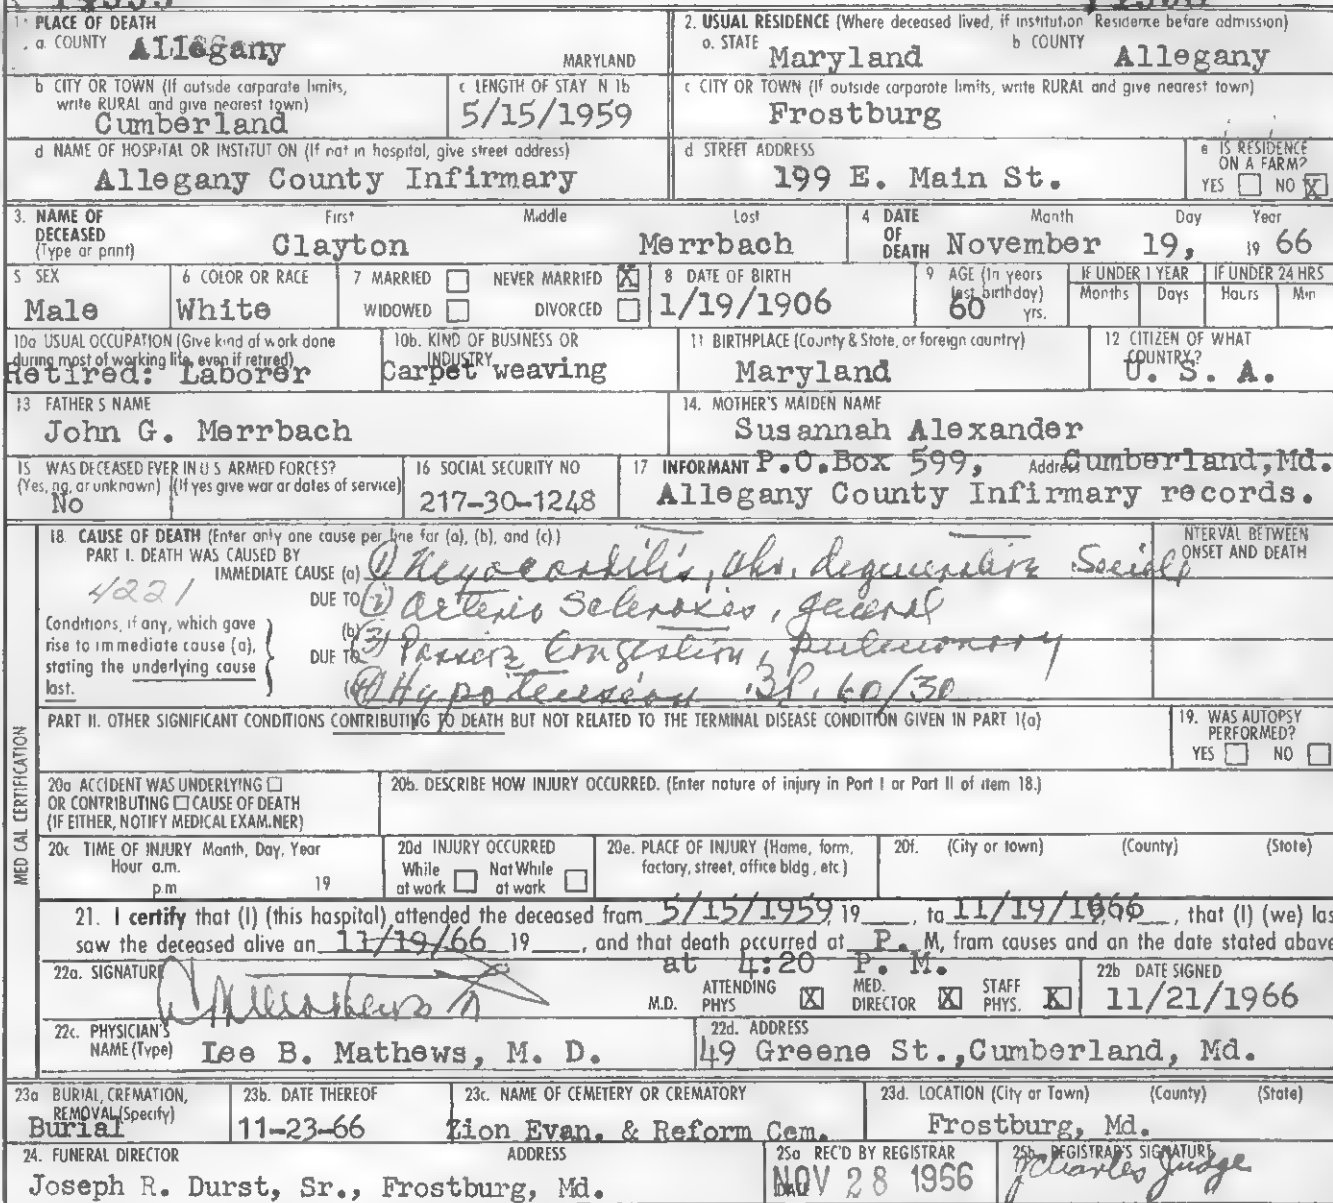 1. PLACE OF DEATH
a. COUNTY Allegany MARYLAND
2. USUAL RESIDENCE (Where deceased lived, if institution Residence before admission)
a. STATE Maryland b COUNTY Allegany
b CITY OR TOWN (If outside corporate limits, write RURAL and give nearest town)
Cumberland
c LENGTH OF STAY N 1b
5/15/1959
c CITY OR TOWN (If outside corporate limits, write RURAL and give nearest town)
Frostburg
d NAME OF HOSPITAL OR INSTITUT ON (If not in hospital, give street address)
Allegany County Infirmary
d STREET ADDRESS
199 E. Main St.
e IS RESIDENCE ON A FARM?
YES NO X
3. NAME OF DECEASED (Type or print)
First Middle Last
Clayton Merrbach
4 DATE OF DEATH Month Day Year
November 19, 19 66
5 SEX
Male
6 COLOR OR RACE
White
7 MARRIED NEVER MARRIED X
WIDOWED DIVORCED
8 DATE OF BIRTH
1/19/1906
9 AGE (In years last birthday)
60 yrs.
IF UNDER 1 YEAR
Months Days
IF UNDER 24 HRS
Hours Min
10a USUAL OCCUPATION (Give kind of work done during most of working life, even if retired)
Retired: Laborer
10b. KIND OF BUSINESS OR INDUSTRY
Carpet weaving
11 BIRTHPLACE (County & State, or foreign country)
Maryland
12 CITIZEN OF WHAT COUNTRY?
U. S. A.
13 FATHER S NAME
John G. Merrbach
14. MOTHER'S MAIDEN NAME
Susannah Alexander
15 WAS DECEASED EVER IN U S ARMED FORCES?
(Yes, no, or unknown) (If yes give war or dates of service)
No
16 SOCIAL SECURITY NO
217-30-1248
17 INFORMANT P.O.Box 599, Address Cumberland,Md.
Allegany County Infirmary records.
18. CAUSE OF DEATH (Enter only one cause per line for (a), (b), and (c).)
PART I. DEATH WAS CAUSED BY
IMMEDIATE CAUSE (a) (1) Myocarditis, chr. degenerative
INTERVAL BETWEEN ONSET AND DEATH
4221
DUE TO (2) Arterio Sclerosis, general
Conditions, if any, which gave rise to immediate cause (a), stating the underlying cause last.
(b) (3) Passive Congestion, pulmonary
DUE TO
(4) Hypotension B.P. 60/30
PART II. OTHER SIGNIFICANT CONDITIONS CONTRIBUTING TO DEATH BUT NOT RELATED TO THE TERMINAL DISEASE CONDITION GIVEN IN PART I(a)
19. WAS AUTOPSY PERFORMED?
YES NO
MEDICAL CERTIFICATION
20a ACCIDENT WAS UNDERLYING
OR CONTRIBUTING CAUSE OF DEATH
(IF EITHER, NOTIFY MEDICAL EXAM.NER)
20b. DESCRIBE HOW INJURY OCCURRED. (Enter nature of injury in Part I or Part II of item 18.)
20c TIME OF INJURY Month, Day, Year
Hour a.m.
p m 19
20d INJURY OCCURRED
While at work Not While at work
20e. PLACE OF INJURY (Home, farm, factory, street, office bldg, etc)
20f. (City or town) (County) (State)
21. I certify that (I) (this hospital) attended the deceased from 5/15/1959 19 , to 11/19/1966 , that (I) (we) las
saw the deceased alive on 11/19/66 19 , and that death occurred at P. M, from causes and on the date stated above
at 4:20 P. M.
22a. SIGNATURE
M.D. ATTENDING PHYS X MED. DIRECTOR X STAFF PHYS. X
22b DATE SIGNED
11/21/1966
22c. PHYSICIAN'S NAME (Type) Lee B. Mathews, M. D.
22d. ADDRESS
49 Greene St.,Cumberland, Md.
23a BURIAL, CREMATION, REMOVAL (Specify)
Burial
23b. DATE THEREOF
11-23-66
23c. NAME OF CEMETERY OR CREMATORY
Zion Evan. & Reform Cem.
23d. LOCATION (City or Town) (County) (State)
Frostburg, Md.
24. FUNERAL DIRECTOR ADDRESS
Joseph R. Durst, Sr., Frostburg, Md.
25a REC'D BY REGISTRAR
NOV 28 1966
25b. REGISTRAR'S SIGNATURE
J Charles Judge